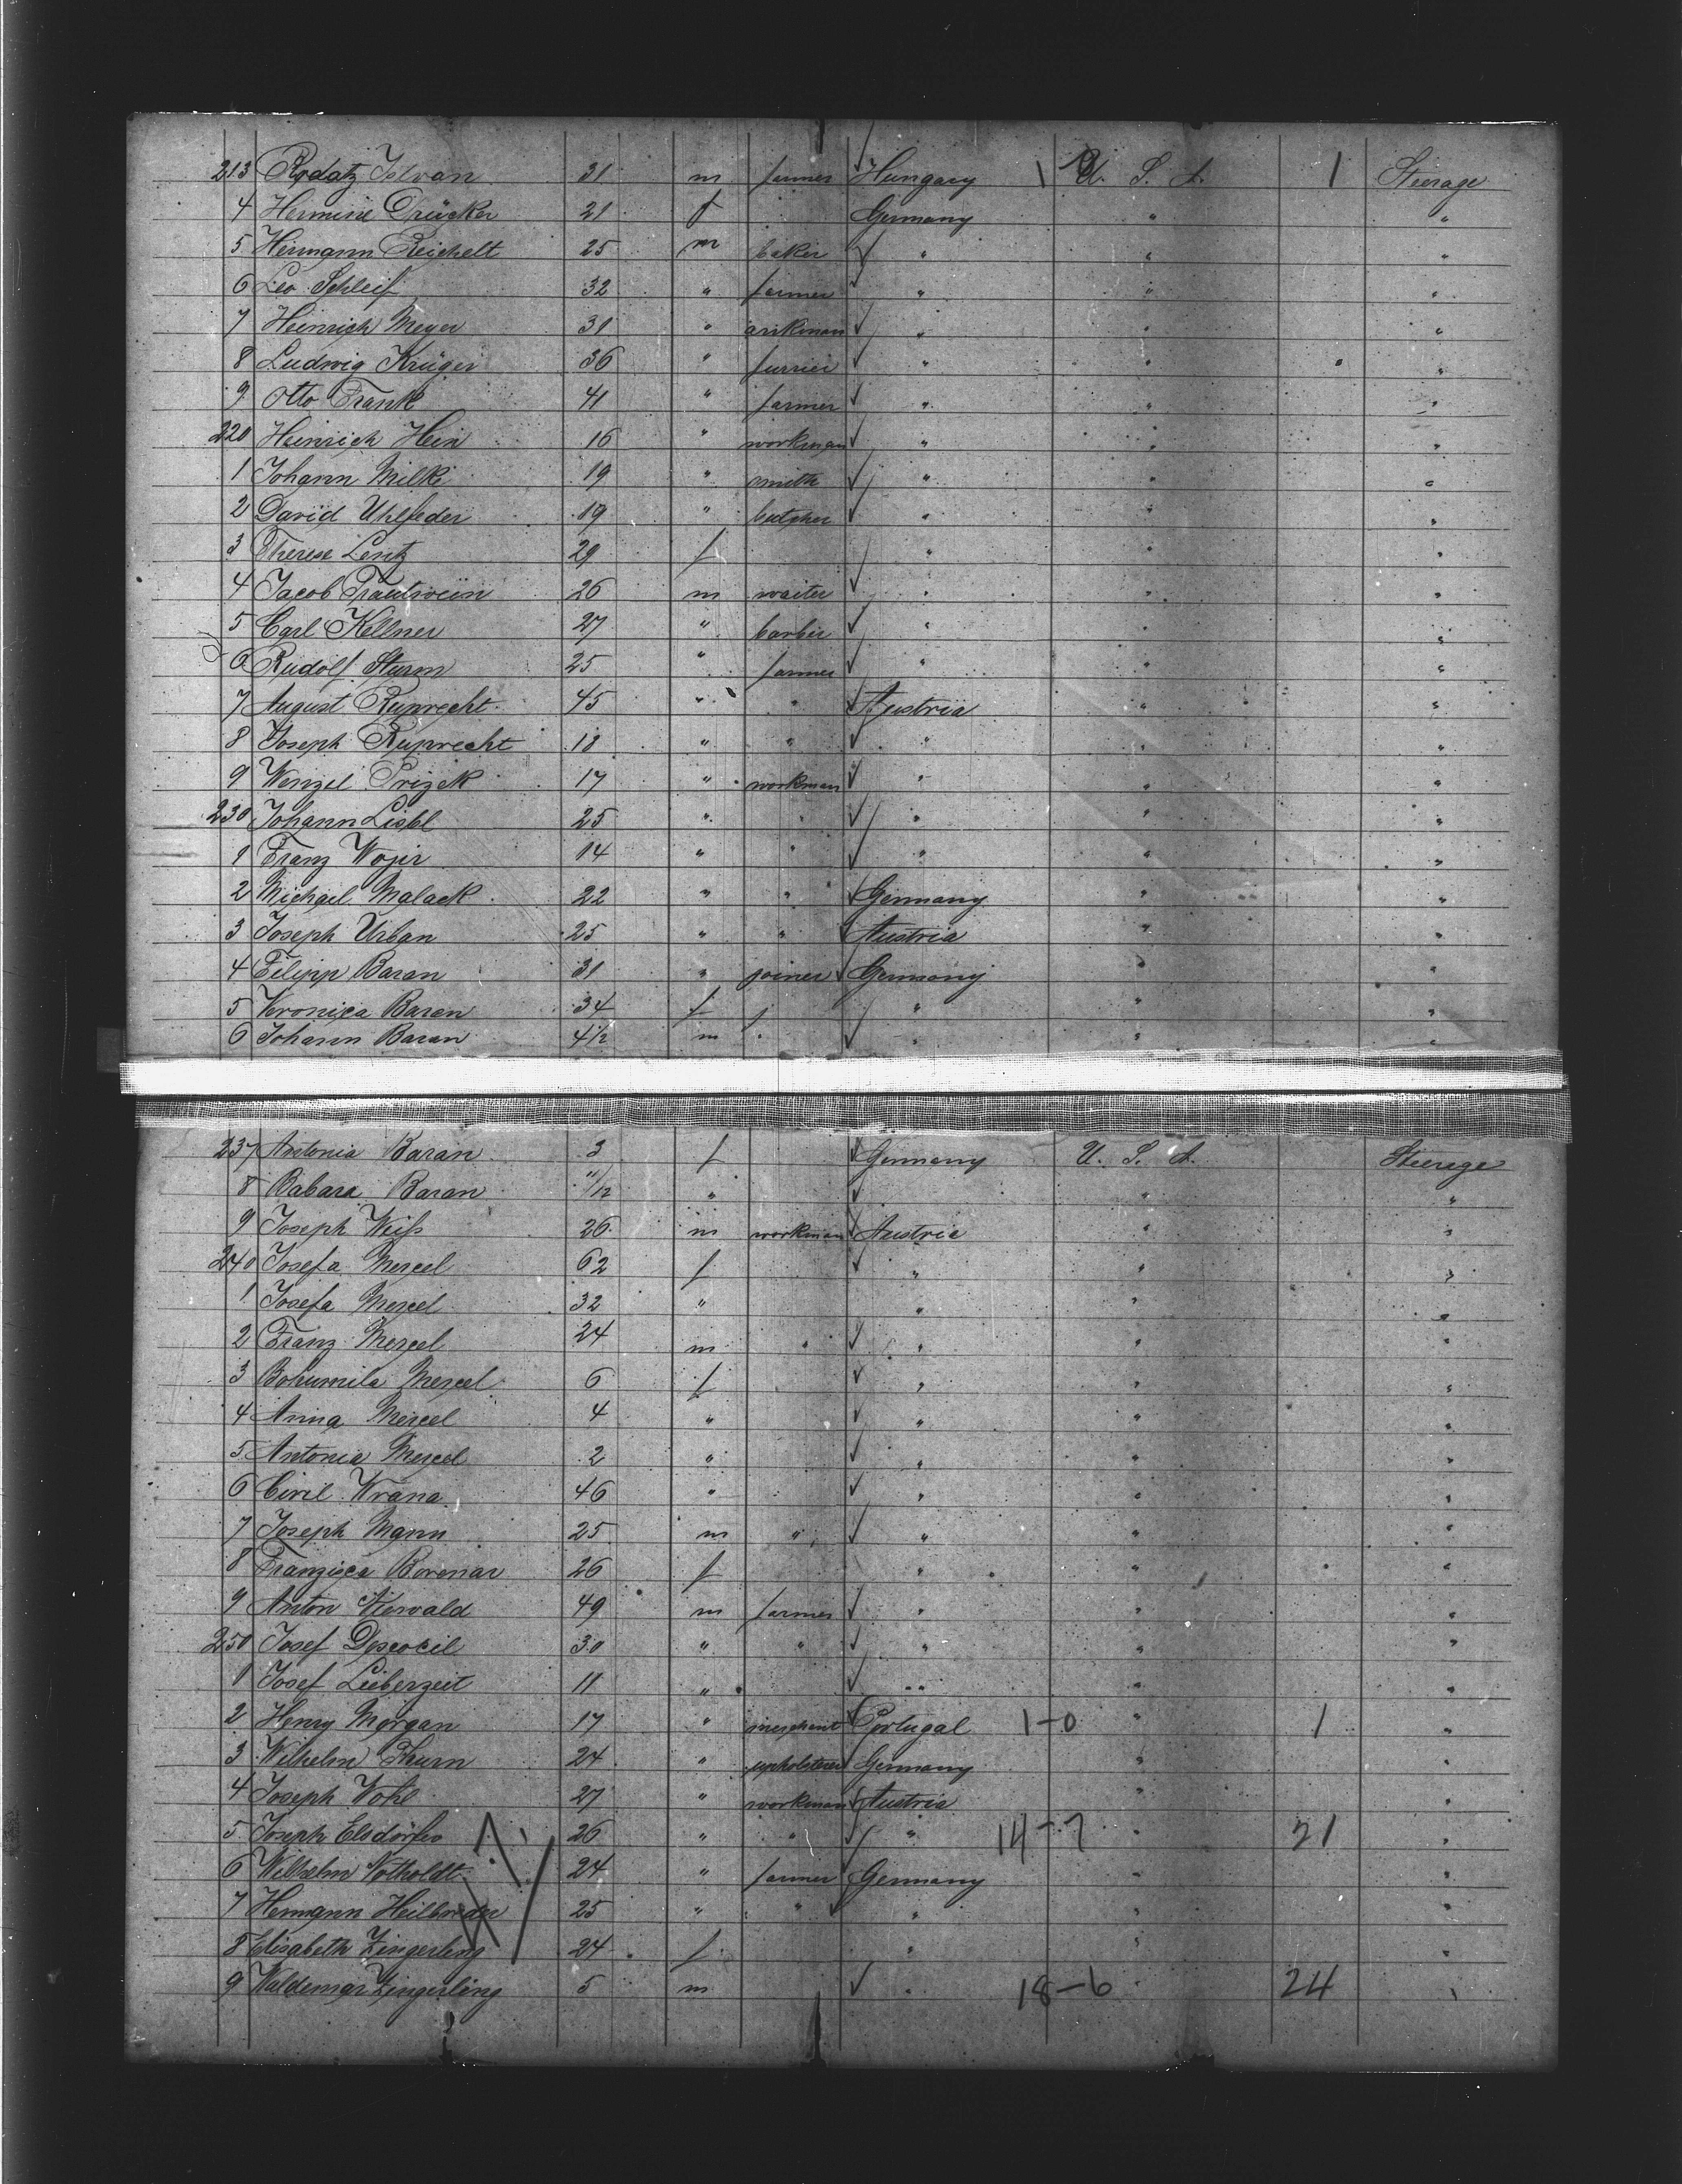 213 Radatz Istvan 31 m farmer Hungary \ U. S. A. 1 Steerage
4 Hermine Drücker 21 f Germany " "
5 Hermann Reichelt 25 m baker " " "
6 Leo Schleif 32 " farmer " " "
7 Heinrich Meyer 31 " " " "
8 Ludwig Krüger 36 " furrier " " "
9 Otto Frank 41 " farmer " " "
220 Heinrich Hein 16 " workman " " "
1 Johann Milke 19 " smith " " "
2 David Uhlfeder 19 " butcher " " "
3 Therese Lentz 29 f " " "
4 Jacob Trautwein 26 m waiter " " "
5 Carl Kellner 27 " barber " " "
6 Rudolf Sturm 25 " farmer " " "
7 August Ruprecht 45 " " Austria " "
8 Joseph Ruprecht 18 " " " " "
9 Wenzel Prizek 17 " workman " " "
230 Johann Liebl 25 " " " " "
1 Franz Wojir 14 " " " " "
2 Michael Malack 22 " " Germany " "
3 Joseph Urban 25 " " Austria " "
4 Filipp Baran 31 " joiner Germany " "
5 Veronica Baran 34 f " " "
6 Johann Baran 4 1/2 m " " "
237 Antonia Baran 3 f Germany U. S. A. Steerage
8 Babara Baran 11/12 " " "
9 Joseph Weiß 26 m workman Austria " "
240 Josefa Mercel 62 f " " "
1 Josefa Mercel 32 " " " "
2 Franz Mercel 24 m " " " "
3 Bohumila Mercel 6 f " " "
4 Anna Mercel 4 " " " "
5 Antonia Mercel 2 " " " "
6 Ciril Vrana 46 " " " "
7 Joseph Mann 25 m " " " "
8 Franzisca Borenar 26 f " " "
9 Anton 49 m farmer " " "
250 Josef 30 " " " " "
1 Josef Lieberzeit 11 " " " "
2 Henry Morgan 17 " merchant Portugal 1-0 " 1 "
3 Wilhelm Thurn 24 " upholsterer Germany " "
4 Joseph Wohl 27 " workman Austria " "
5 Joseph Elsdörfer 26 " " " 14-7 " 21 "
6 Wilhelm Notholdt 24 " farmer Germany " "
7 Hermann 25 " " " " "
8 Elisabeth Zingerling 24 f " " "
9 Waldemar Zingerling 5 m " 18-6 " 24 "